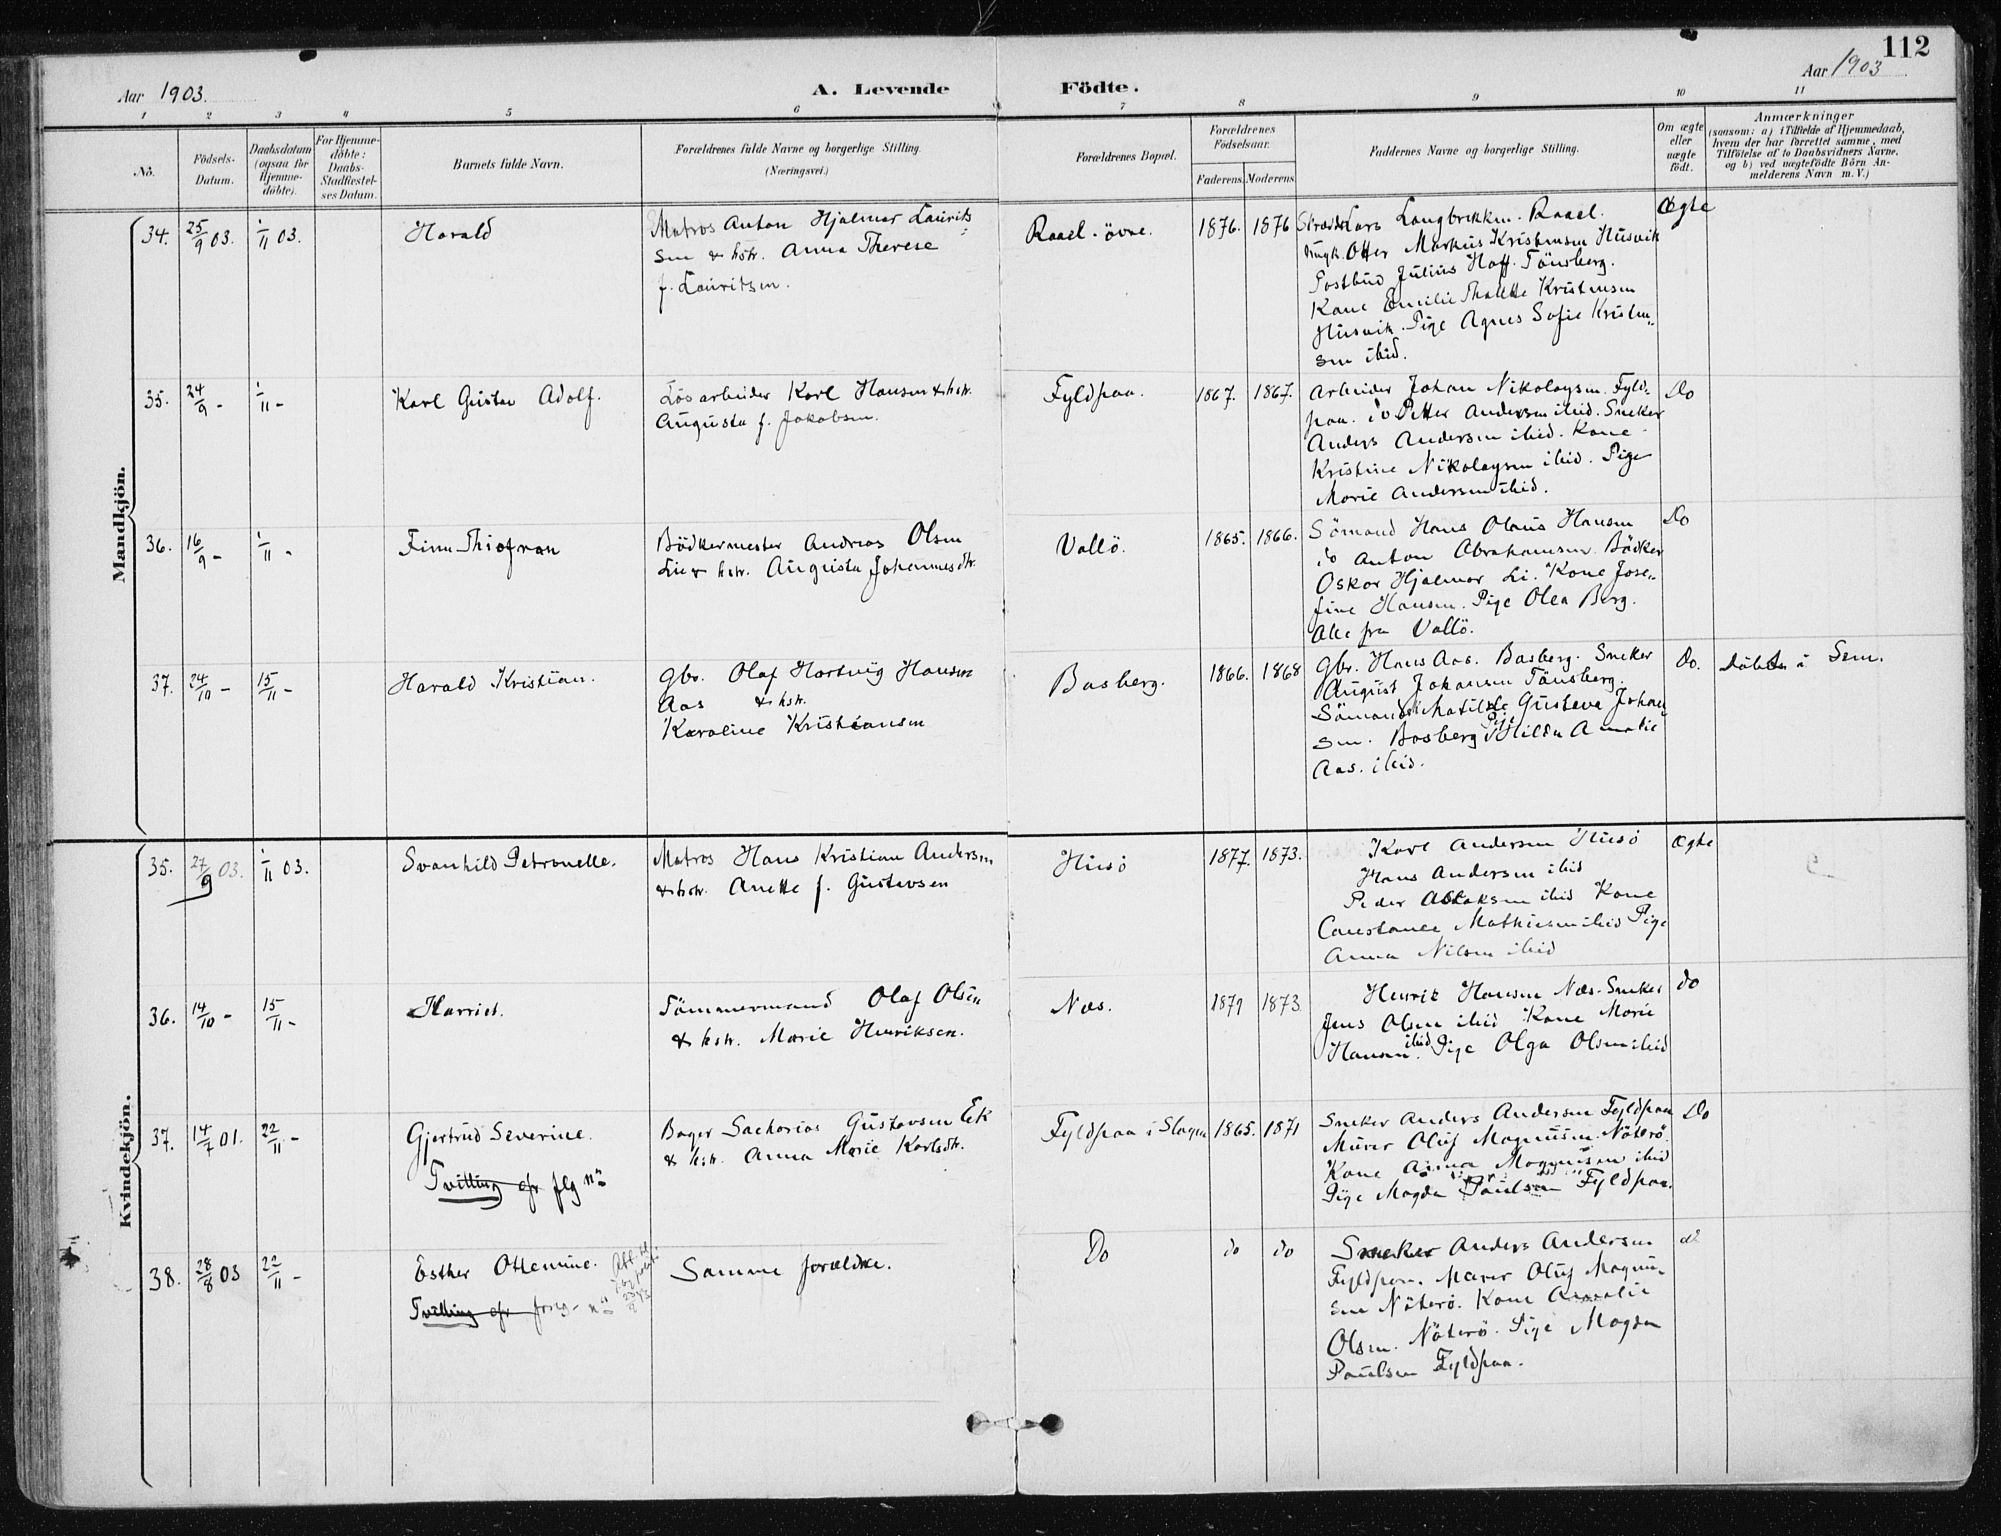 112
Aar 1903.
A. Levende Födte.
Aar 1903
1 2 3 4 5 6 7 8 9 10 11
No.
Födsels-
Datum.
Daabsdatum
(ogsaa for
Hjemme-
döbte).
For Hjemme-
döbte:
Daabs-
Stadfæstel-
ses Datum.
Barnets fulde Navn.
Forældrenes fulde Navne og borgerlige Stilling.
(Næringsvei.)
Forældrenes Bopæl.
Forældrenes
Födselsaar.
Faderens. Moderens.
Faddernes Navne og borgerlige Stilling.
Om ægte
eller
uægte
födt.
Anmærkninger
(saasom: a) i Tilfælde af Hjemmedaab,
hvem der har forrettet samme, med
Tilföielse af to Daabsvidners Navne,
og b) ved uægtefödte Börn An-
melderens Navn m. V.)
Mandkjön.
34. 25/9 03. 1/11 03. Harald
Matros Anton Hjalmar Laurits
sen & hstr. Anna Therese
f. Lauritsen.
Raael. övre. 1876. 1876
Lars Langbrekken. Raael.
Otter Markus Kristensen Husvik
Postbud Julius Hoff. Tönsberg.
Kone Emilie Kristensen
Husvik. Pige Agnes Sofie Kristen-
sen ibid.
Ægte
35. 24/9 - 1/11 - Karl Gustav Adolf.
Lösarbeider Karl Hansen & hstr.
Augusta f. Jakobsen.
Fyldpaa. 1867. 1867.
Arbeider Johan Nikolaysen. Fyld-
paa. do Petter Andersen ibid. Sneker
Anders Andersen ibid. Kone
Kristine Nikolaysen ibid. Pige
Marie Andersen ibid.
Do
36. 16/9 - 1/11 - Finn Thiofran
Bödkermester Andreas Olsen
Lie & hstr. Augusta Johannesdtr.
Vallö. 1865. 1866.
Sömand Hans Olaus Hansen
do Anton Abrahamsen. Bödker
Oskar Hjalmar Li. Kone Jose-
fine Hansen. Pige Olea Berg.
Alle fra Vallö.
Do
37. 24/10 - 15/11 - Harald Kristian.
Gbr. Olaf Hartvig Hansen
Aas & hstr.
Karoline Kristiansen
Basberg. 1866. 1868
Gbr. Hans Aas. Basberg. Sneker
August Johansen Tönsberg.
Matilde Gustava Johan
sen. Basberg Pige Hilda Amalie
Aas. ibid.
Do. i Sem.
Kvindekjön.
35. 27/9 03. 1/11 03. Svanhild Petronelle.
Matros Hans Kristian Andersen
& hstr. Anette f. Gustavsen
Husö 1877. 1873.
Karl Andersen Husö
Hans Andersen ibid
Peder ibid Kone
Constance Mathiesen ibid Pige
Anna Nilsen ibid
Ægte
36. 14/10 - 15/11 - Harriet.
Tömmermand Olaf Olsen
& hstr. Marie Henriksen.
Næs. 1879 1873.
Henrik Hansen Næs. Sneker
Jens Olsen ibid Kone Marie
Hansen ibid. Pige Olga Olsen ibid
do
37. 14/7 01. 22/11 - Gjertrud Severine.
Tvilling cfr flg no
Bager Sacharias Gustavsen Eek
& hstr. Anna Marie Karlsdtr.
Fyldpaa i Slagen 1865. 1871
Sneker Anders Andersen Fyldpaa
Murer Oluf Magnusen. Nöterö.
Kone Anna Magnusen ibid
Pige Magda Paulsen Fyldpaa.
Do
38. 28/8 03 22/11 - Esther Ottemine.
Tvilling cfr no
Samme forældre.
Do do do
Sneker Anders Andersen
Fyldpaa. Murer Oluf Magnu-
sen Nöterö. Kone Amalie
Olsen. Nöterö. Pige Magda
Paulsen Fyldpaa.